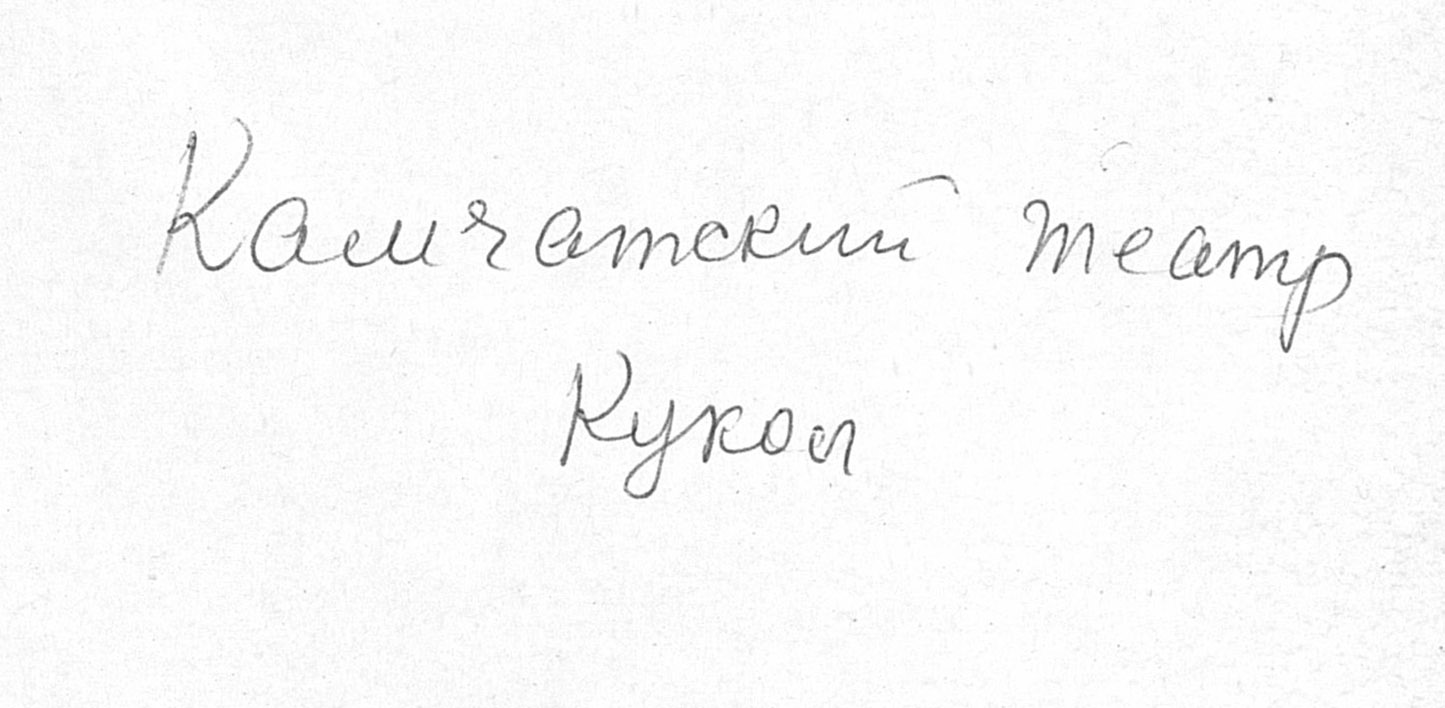 Камчатский театр
Кукол